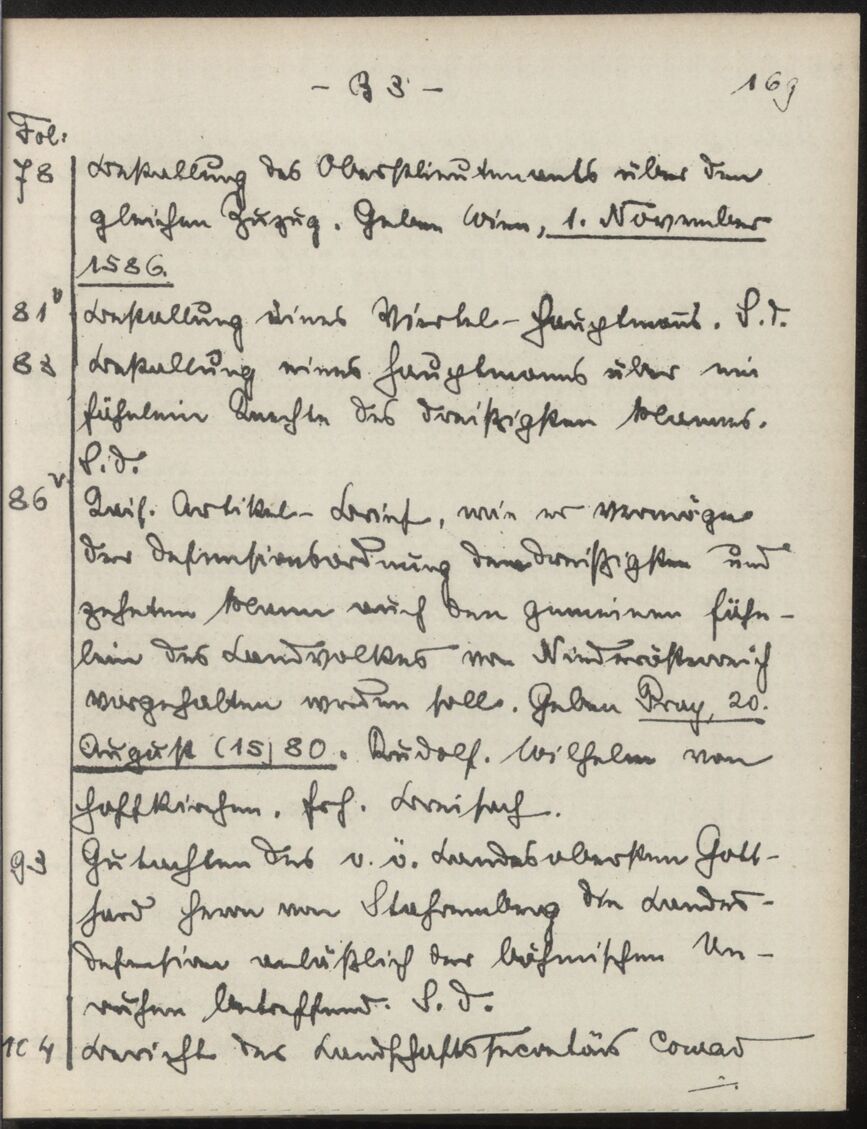 - B 3 -
169
Fol:
78 Bestallung des Oberstlieutenants über den
gleichen Zuzug. Geben Wien, 1. November
1586.
81v Bestallung eines Viertel-Hauptmanns. S. d.
83 Bestallung eines Hauptmanns über ein
Fähnlein Knechte des dreißigsten Mannes.
S. d.
86v Kais. Artikel-Brief, wie er vermöge
der Defensionsordnung dem dreißigsten und
zehnten Mann auch den gemeinen Fähn-
lein des Landvolkes von Niederösterreich
vorgehalten werden solle. Geben Prag, 20.
August (15)80. Rudolf. Wilhelm von
Hoffkirchen, Frh. Breisach.
93 Gutachten des o. ö. Landesobersten Gott-
hard Herrn von Starhemberg die Landes-
defension anläßlich der böhmischen Un-
ruhen betreffend. S. d.
104 Bericht des Landschaftssecretärs Conrad